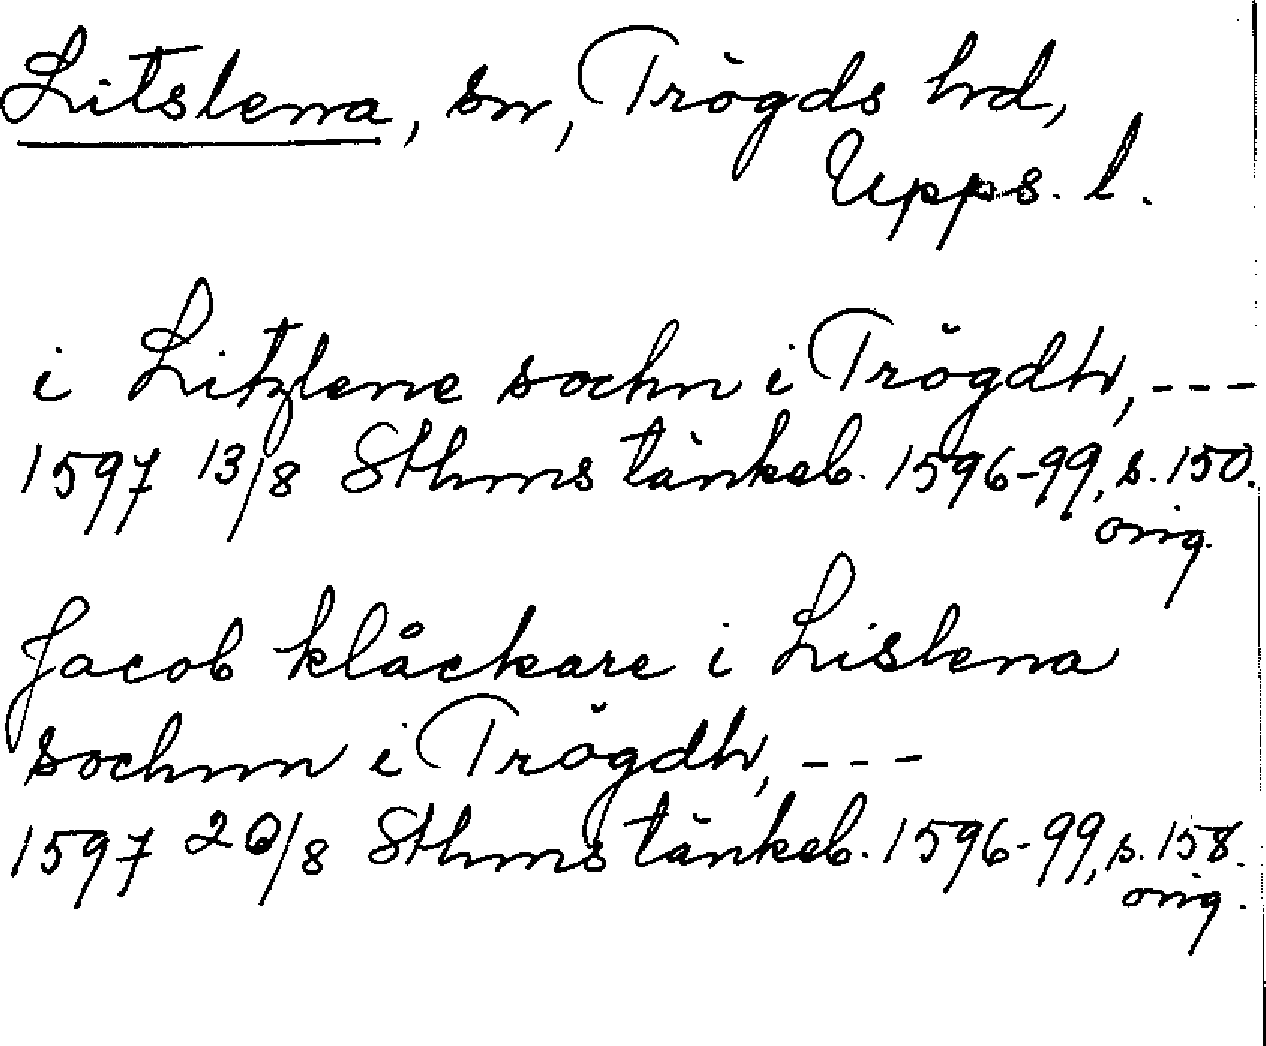 Litslena, sn, Trögds hd,
Upps. l.
i Litzlene sochn i Trögdh, ---
1597 13/8 Sthms tänkeb. 1596-99, s. 150.
orig.
Jacob klåckare i Lislena
sochnn i Trögdh, ---
1597 26/8 Sthms tänkeb. 1596-99, s. 158.
orig.